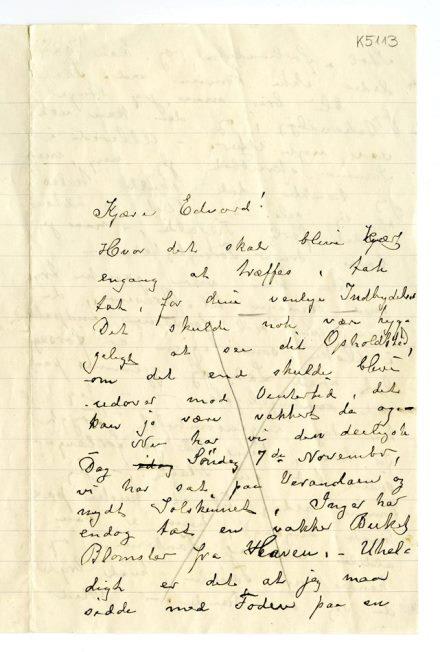 K5113
Kjære Edvard!
Hvor det skal blive kjært
engang at træffes, tak
tak, for dine venlige Indbydelser
Det skulde nok være hygge-
geligt at see dit Opholdsted,
om det end skulde blive
udover mod Vintertid, det
kan jo være vakkert da og
Nu har vi den deiligste
Dag idag Söndag 7de November,
vi har sat paa Verandaen og
nydt Solskinnet, Inger har
endog tat en vakker Buket
Blomster fra Haven. – Uhel-
digt er det at jeg maa
sidde med Foden paa en